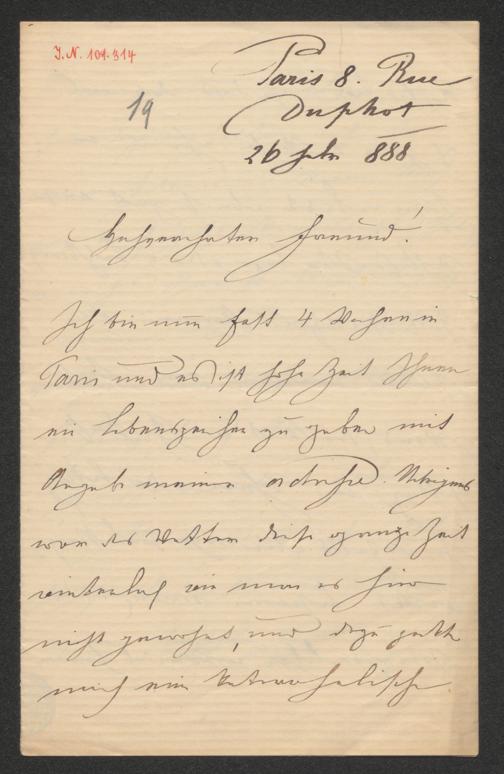 J.N. 109.314
19
Paris 8. Rue
Duphot
26 Febr 888
Hochgeehrter Freund!
Ich bin nun fast 4 Wochen in
Paris und es ist hohe Zeit Ihnen
ein Lebenszeichen zu geben mit
Angabe meiner Adresse. Uebrigens
war das Wetter diese ganze Zeit
winterlich wie man es hier
nicht gewohnt, und dazu
mich ein